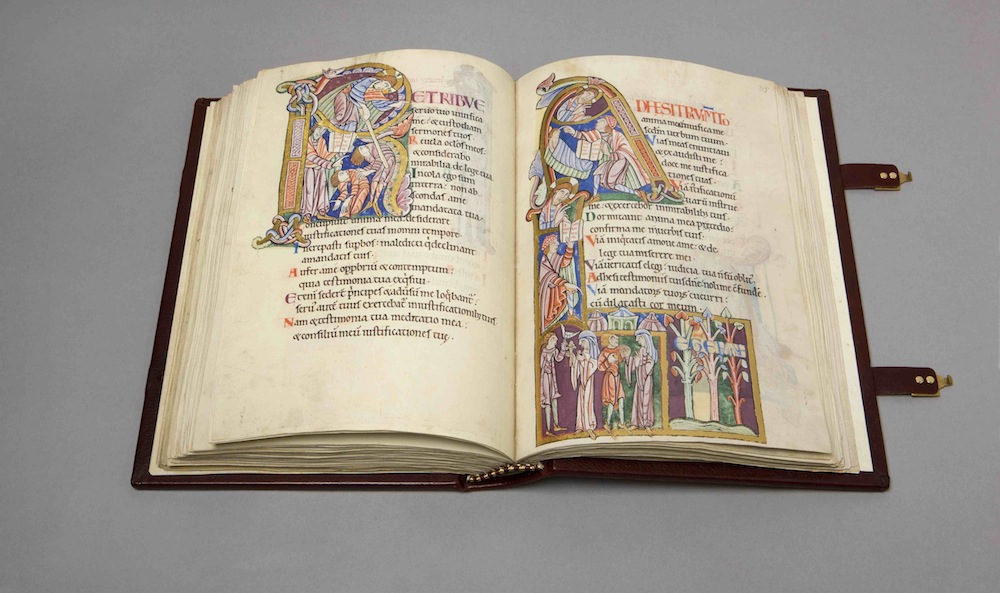 RETRIBVE
seruo tuo uiuifica
me: & custodiam
sermones tuos.
Reuela oclos meos:
& considerabo
mirabilia de lege tua.
Incola ego sum
in terra: non ab
scondas a me
mandata tua:
Concupiuit anima mea desiderare
iustificationes tuas in omni tempore.
Increpasti supbos: maledicti q declinant
a mandatis tuis.
Aufer a me oppbriū & contemptum:
quia testimonia tua exqsiui.
Etenī sedert pncipes & adūsū me loqbant:
seru autē tuus exercebat in iustificationib; tuis.
Nam & testimonia tua meditatio mea:
& consiliū meū iustificationes tuę.
ADHESIT PAVIMTO
anima mea uiuifica me
scdm uerbum tuum.
Vias meas enuntiaui
& exaudisti me:
doce me iustifica
tiones tuas.
Viā iustificationū
tuarū instrue
me: & exercebor in mirabilibus tuis.
Dormitauit anima mea p̄ tedio:
confirma me in uerbis tuis.
Viā iniqtatis amoue a me: & de
lege tua miserere mei.
Viā ueritatis elegi: iudicia tua n̄ sū oblit.
Adhesi testimoniis tuis dn̄e: noli me cfunde.
Viā mandatorū tuorū cucurri:
cū dilatasti cor meum.